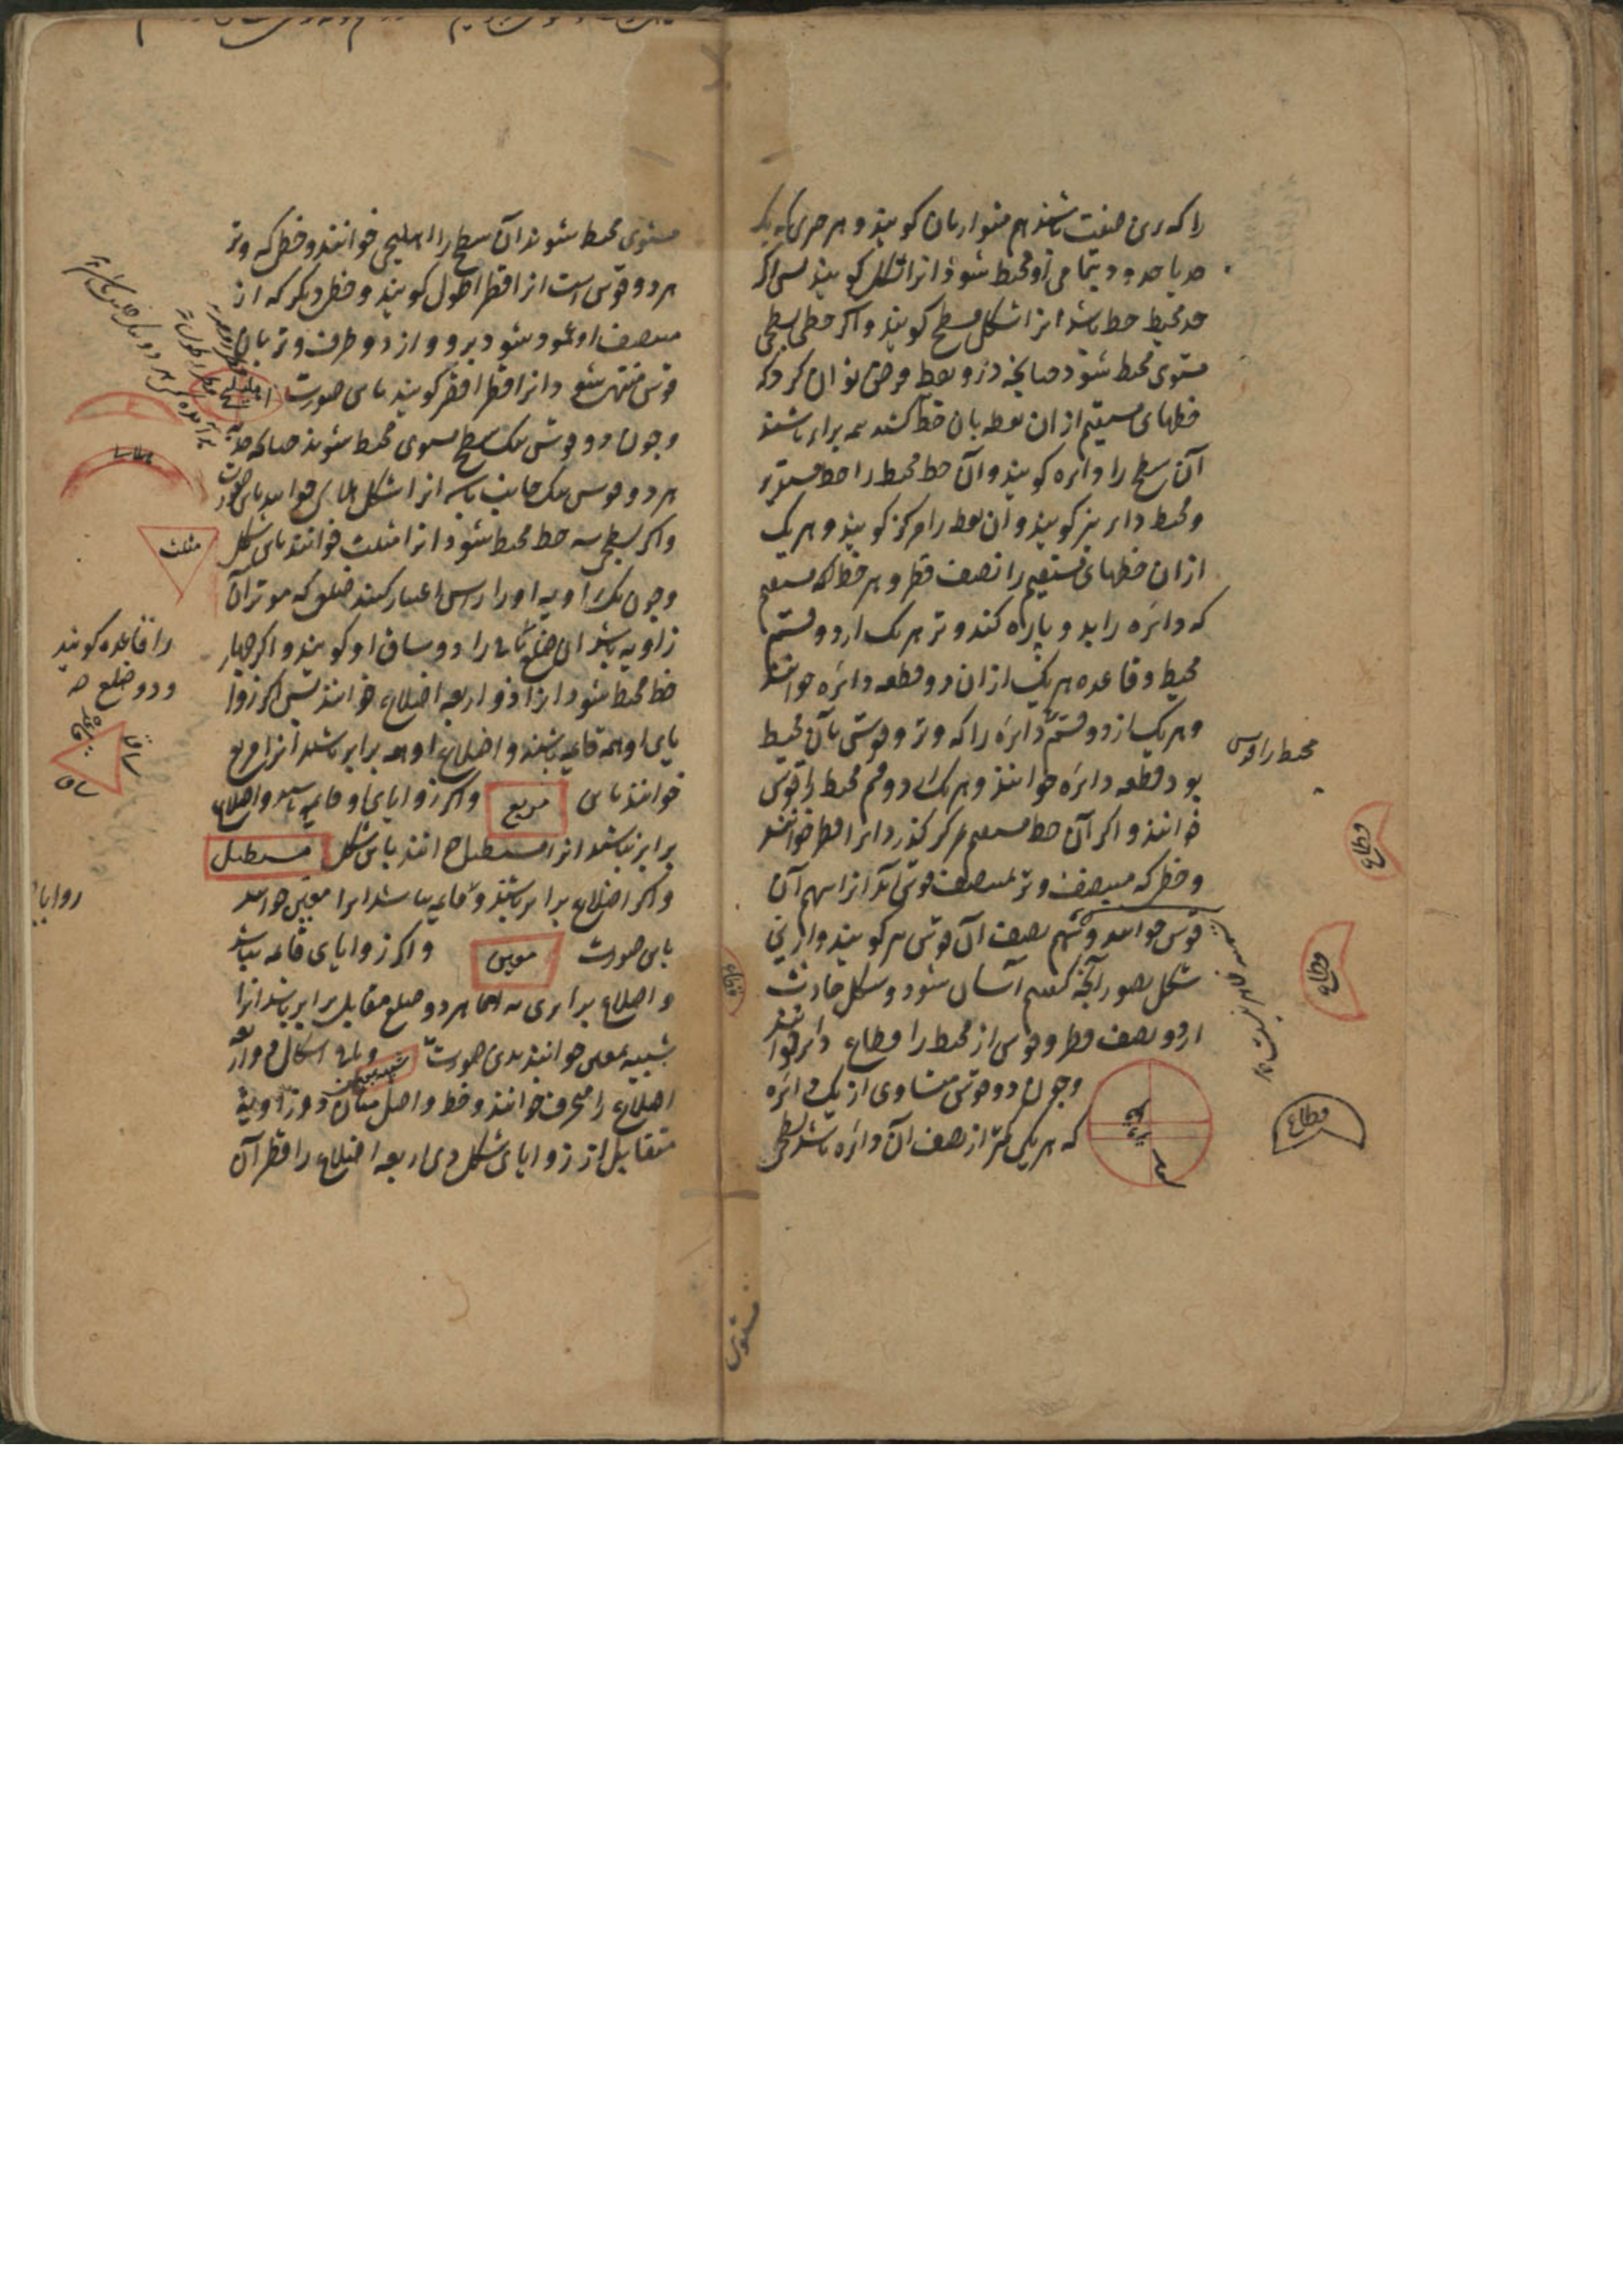 را که برین صفت باشند هم متوازیان کویند و هر چیزی که یک
حد یا حدود بتمامی او محیط شود انرا شکل کویند پس اکر
حد محیط خط باشد انرا شکل مسطح کویند و اکر خطی بسطحی
مستوی محیط شود چنانچه درو نقطه فرض توان کرد که
خطهای مستقیم از ان نقطه بان خط کشند همه برابر باشند
آن سطح را دایره کویند و آن خط محیط را خط مستدیر
و محیط دایره نیز کویند و آن نقطه را مرکز کویند و هر یک
از ان خطهای مستقیم را نصف قطر و هر خط مستقیم
که دائره را بدو پاره کند وتر هر یک از دو قسم
محیط و قاعده هر یک از ان دو قطعه دائره خوانند
و هر یک از دو قسم دائره را که وتر و قوسی بآن محیط
بود قطعه دائره خوانند و هر یک از دو قسم محیط را قوس
خوانند و اکر آن خط مستقیم بمرکز کذرد انرا قطر خوانند
و خطی که منتصف وتر بمنتصف قوس آید انرا سهم آن
قوس خوانند و سهم نصف آن قوس نیز کویند و ازین
شکل تصور آنچه کفتیم آسان شود و شکل حادث
از دو نصف قطر و قوسی از محیط را قطاع دائره خوانند
و چون دو قوس متساوی از یک دائره
که هر یک کمتر از نصف آن دائره باشد بسطحی
محیط را قوس
قطاع
قطاع
قطاع
مستوی
مستوی محیط شوند آن سطح را اهلیلجی خوانند و خطی که وتر
هر دو قوس است انرا قطر اطول کویند و خطی دیکر که از
منتصف او عمود شود برو و از دو طرف وتر بان
قوس منتهی شود انرا قطر اقصر کویند باین صورت
و چون دو قوس بیک سطح مستوی محیط شوند چنانکه حدبه
هر دو قوس بیک جانب باشد انرا شکل هلالی خوانند باین صورت
و اکر بسطحی سه خط محیط شود انرا مثلث خوانند باین شکل
مثلث
و چون یک زاویه او را راس اعتبار کنند ضلعی که موتر آن
زاویه باشد را قاعده کویند
و دو ضلع
را دو ساق او کویند و اکر چهار
خط محیط شود انرا ذو اربعه اضلاع خوانند پس اکر زوا
یای او همه قائمه باشند و اضلاع او همه برابر باشند انرا مربع
قاعده
ساق
ساق
خوانند باین مربع و اکر زوایای او قائمه باشد و اضلاع
برابر نباشد انرا مستطیل خوانند باین شکل مستطیل
و اکر اضلاع برابر باشند و قائمه نباشد انرا معین خوانند
باین صورت معین و اکر زوایای قائمه نباشد
و اضلاع برابر نی اما هر دو ضلع مقابل برابر باشد انرا
شبیه بمعین خوانند بدین صورت شبیه بمعین و باقی اشکال ذو اربعه
اضلاع را منحرف خوانند و خط واصل میان دو زاویه
متقابل از زوایای شکل ذی اربعه اضلاع را قطر آن